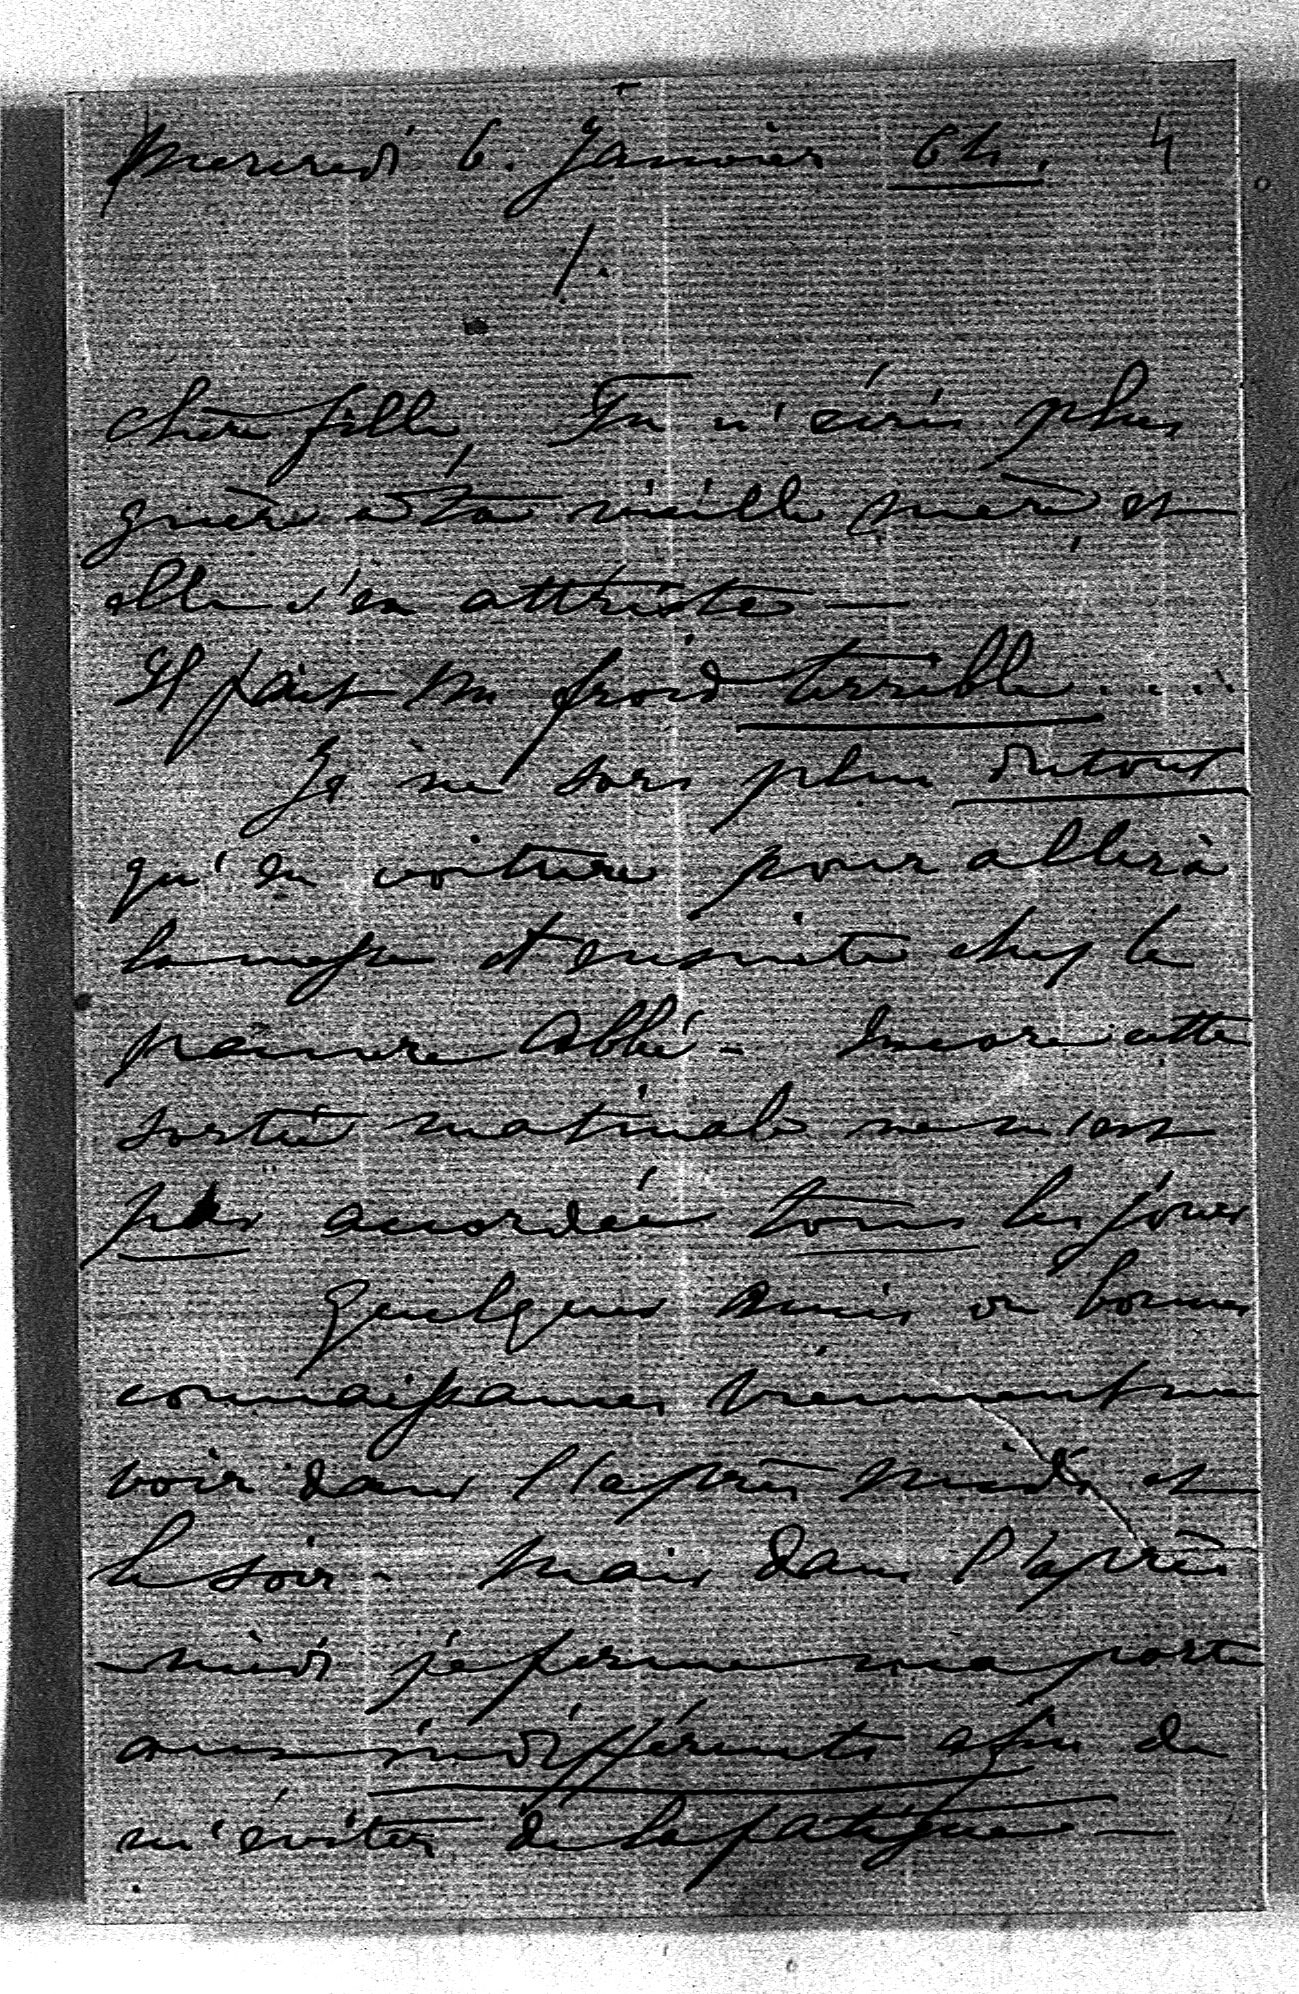 Mercredi 6. Janvier 64. 4
1.
chère fille, Tu n'écris plus
guère à ta vieille mère et
elle s'en attriste —
Il fait un froid terrible....
Je ne sors plus dutout
qu'en voiture pour aller à
la messe et ensuite chez le
pauvre Abbé - Encore cette
sortie matinale ne m'est
pas accordée tous les jours
Quelques amis ou bonnes
connaissances viennent me
voir dans l'après midi et
le soir - Mais dans l'après
-midi je ferme ma porte
aux indifférents afin de
m'éviter de la fatigue —